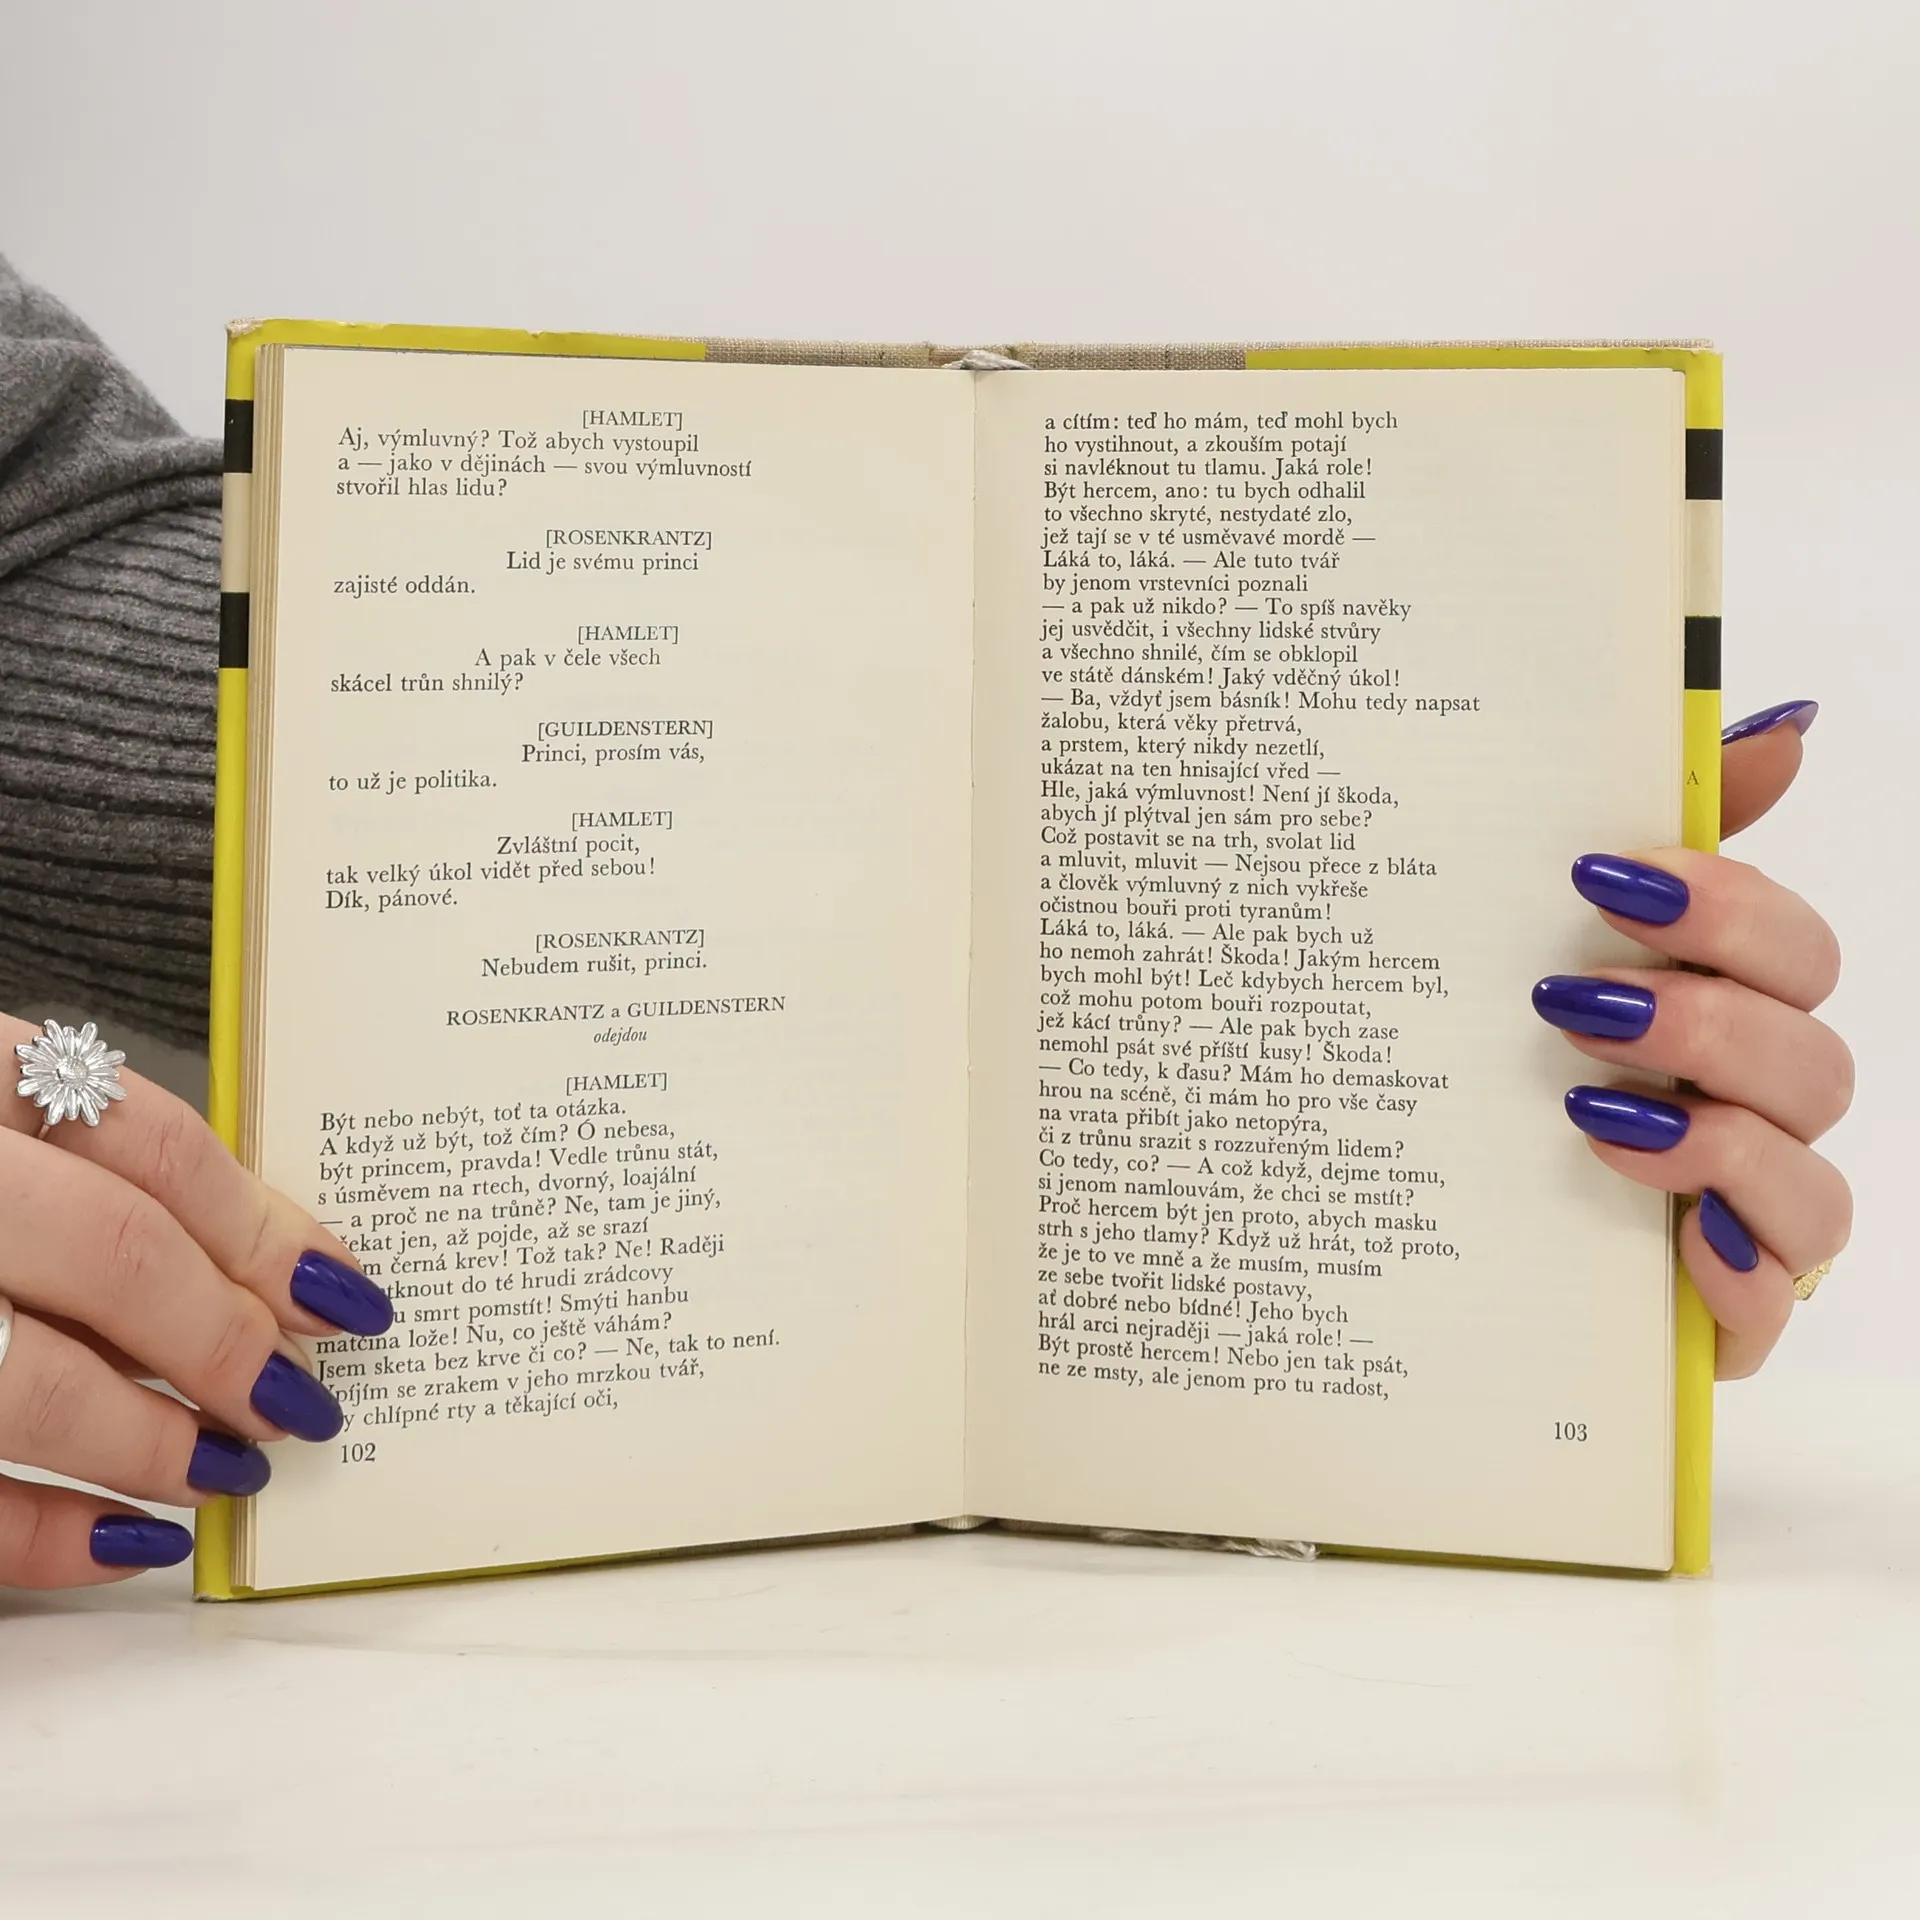 [HAMLET]
Aj, výmluvný? Tož abych vystoupil
a — jako v dějinách — svou výmluvností
stvořil hlas lidu?
[ROSENKRANTZ]
Lid je svému princi
zajisté oddán.
[HAMLET]
A pak v čele všech
skácel trůn shnilý?
[GUILDENSTERN]
Princi, prosím vás,
to už je politika.
[HAMLET]
Zvláštní pocit,
tak velký úkol vidět před sebou!
Dík, pánové.
[ROSENKRANTZ]
Nebudem rušit, princi.
ROSENKRANTZ a GUILDENSTERN
odejdou
[HAMLET]
Být nebo nebýt, toť ta otázka.
A když už být, tož čím? Ó nebesa,
být princem, pravda! Vedle trůnu stát,
s úsměvem na rtech, dvorný, loajální
— a proč ne na trůně? Ne, tam je jiný,
jen, až pojde, až se srazí
černá krev! Tož tak? Ne! Raději
do té hrudi zrádcovy
smrt pomstít! Smýti hanbu
matčina lože! Nu, co ještě váhám?
Jsem sketa bez krve či co? — Ne, tak to není.
se zrakem v jeho mrzkou tvář,
chlípné rty a těkající oči,
102
a cítím: teď ho mám, teď mohl bych
ho vystihnout, a zkouším potají
si navléknout tu tlamu. Jaká role!
Být hercem, ano: tu bych odhalil
to všechno skryté, nestydaté zlo,
jež tají se v té usměvavé mordě —
Láká to, láká. — Ale tuto tvář
by jenom vrstevníci poznali
— a pak už nikdo? — To spíš navěky
jej usvědčit, i všechny lidské stvůry
a všechno shnilé, čím se obklopil
ve státě dánském! Jaký vděčný úkol!
— Ba, vždyť jsem básník! Mohu tedy napsat
žalobu, která věky přetrvá,
a prstem, který nikdy nezetlí,
ukázat na ten hnisající vřed —
Hle, jaká výmluvnost! Není jí škoda,
abych jí plýtval jen sám pro sebe?
Což postavit se na trh, svolat lid
a mluvit, mluvit — Nejsou přece z bláta
a člověk výmluvný z nich vykřeše
očistnou bouři proti tyranům!
Láká to, láká. — Ale pak bych už
ho nemoh zahrát! Škoda! Jakým hercem
bych mohl být! Leč kdybych hercem byl,
což mohu potom bouři rozpoutat,
jež kácí trůny? — Ale pak bych zase
nemohl psát své příští kusy! Škoda!
— Co tedy, k ďasu? Mám ho demaskovat
hrou na scéně, či mám ho pro vše časy
na vrata přibít jako netopýra,
či z trůnu srazit s rozzuřeným lidem?
Co tedy, co? — A což když, dejme tomu,
si jenom namlouvám, že chci se mstít?
Proč hercem být jen proto, abych masku
strh s jeho tlamy? Když už hrát, tož proto,
že je to ve mně a že musím, musím
ze sebe tvořit lidské postavy,
ať dobré nebo bídné! Jeho bych
hrál arci nejraději — jaká role! —
Být prostě hercem! Nebo jen tak psát,
ne ze msty, ale jenom pro tu radost,
103
A